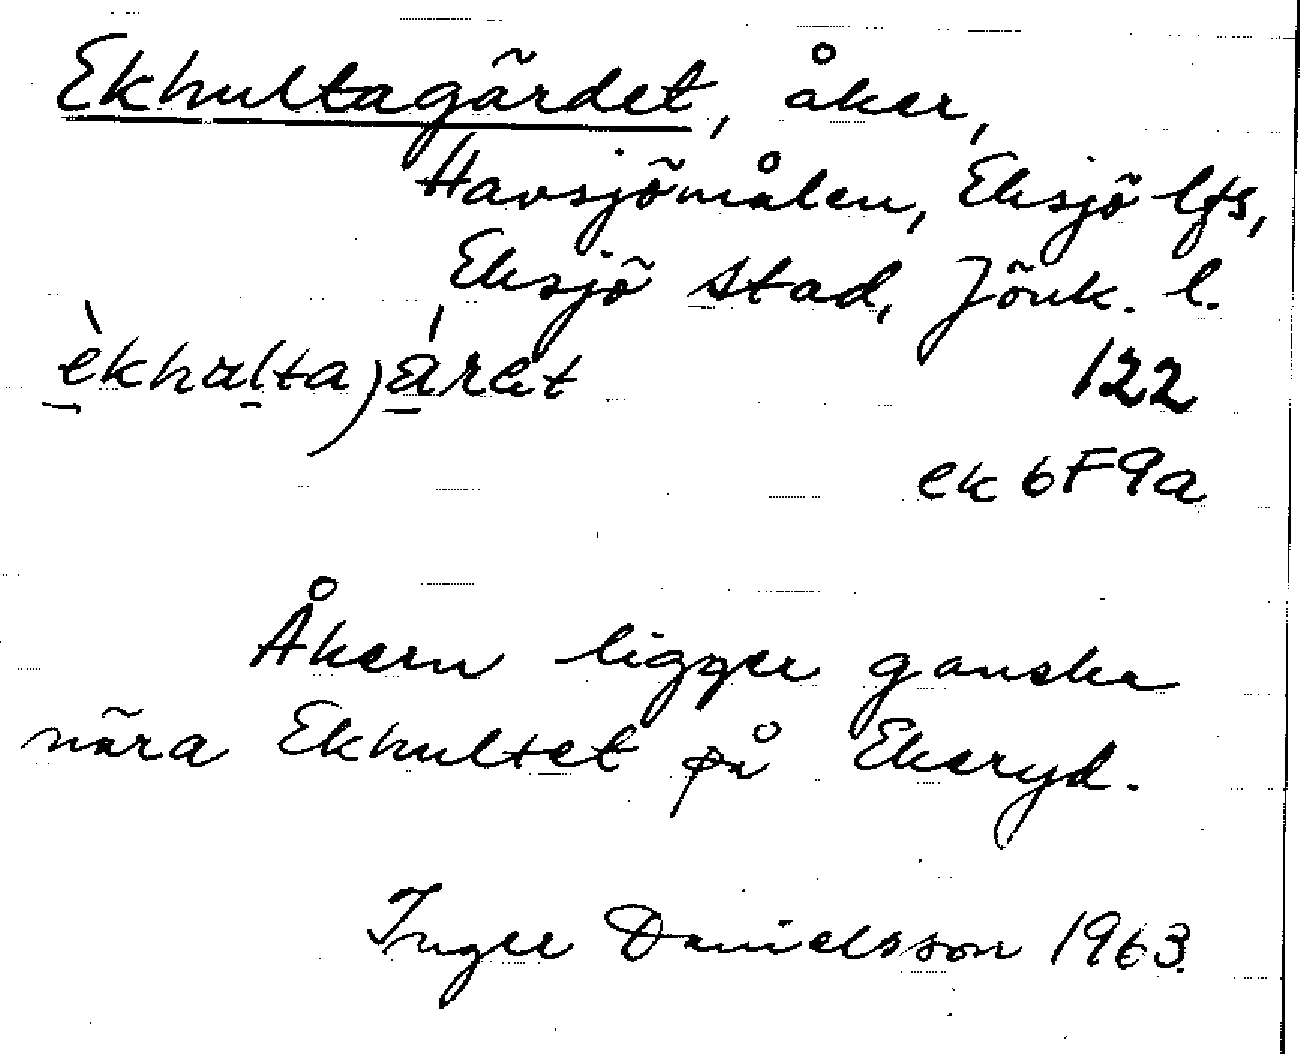 Ekhultagärdet, åker,
Havsjömålen, Eksjö lfs,
Eksjö stad, Jönk. l.
èkhulta)áret
122
ek 6F9a
Åkern ligger ganska
nära Ekhultet på Ekeryd.
Inger Danielsson 1963.